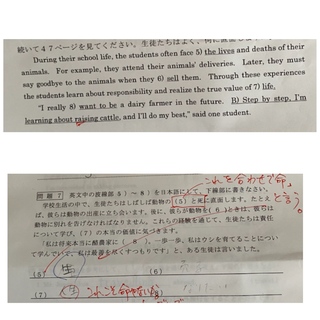 続いて47ページを見てください。生徒たちはよく、
During their school life, the students often face 5) the lives and deaths of their
animals. For example, they attend their animals' deliveries. Later, they must
say goodbye to the animals when they 6) sell them. Through these experiences
the students learn about responsibility and realize the true value of 7) life.
"I really 8) want to be a dairy farmer in the future. B) Step by step, I'm
learning about raising cattle, and I'll do my best," said one student.
これを合わせて命
と言う。
問題7 英文中の下線部5)~8)を日本語にして、下線部に書きなさい。
学校生活の中で、生徒たちはしばしば動物の(5)と死に直面します。たとえ
ば、彼らは動物の出産に立ち会います。後に、彼らが動物を(6)ときは、彼らは
動物に別れを告げなければなりません。これらの経験を通して、生徒たちは責任
について学び、(7)の本当の価値に気づきます。
「私は将来本当に酪農家に(8)。一歩一歩、私はウシを育てることについ
て学んでいて、私は最善を尽くすつもりです」と、ある生徒は言いました。
(5) 生 (6)
(7) 生 これこそ命